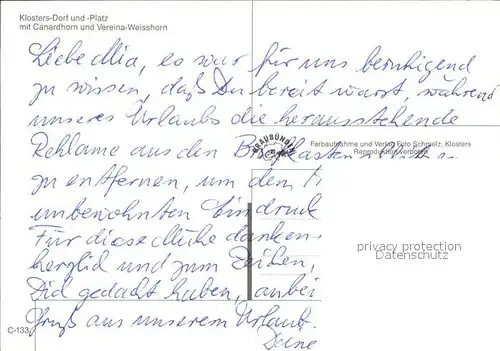 Klosters-Dorf und -Platz
mit Canardhorn und Vereina-Weisshorn
Liebe Mia, es war für uns beruhigend
zu wissen, daß Du bereit warst, während
unseres Urlaubs die herausstehende
GRAUBÜNDEN
Farbaufnahme und Verlag Foto Schmelz, Klosters
Reproduktion verboten
Reklame aus dem Briefkasten
zu entfernen, um dem
unbewohnten Eindruck
Für diese Mühe danken
herzlich und zum Zeichen,
privacy protection
Datenschutz
Dich gedacht haben, anbei
C-133
Gruß aus unserem Urlaub.
Deine